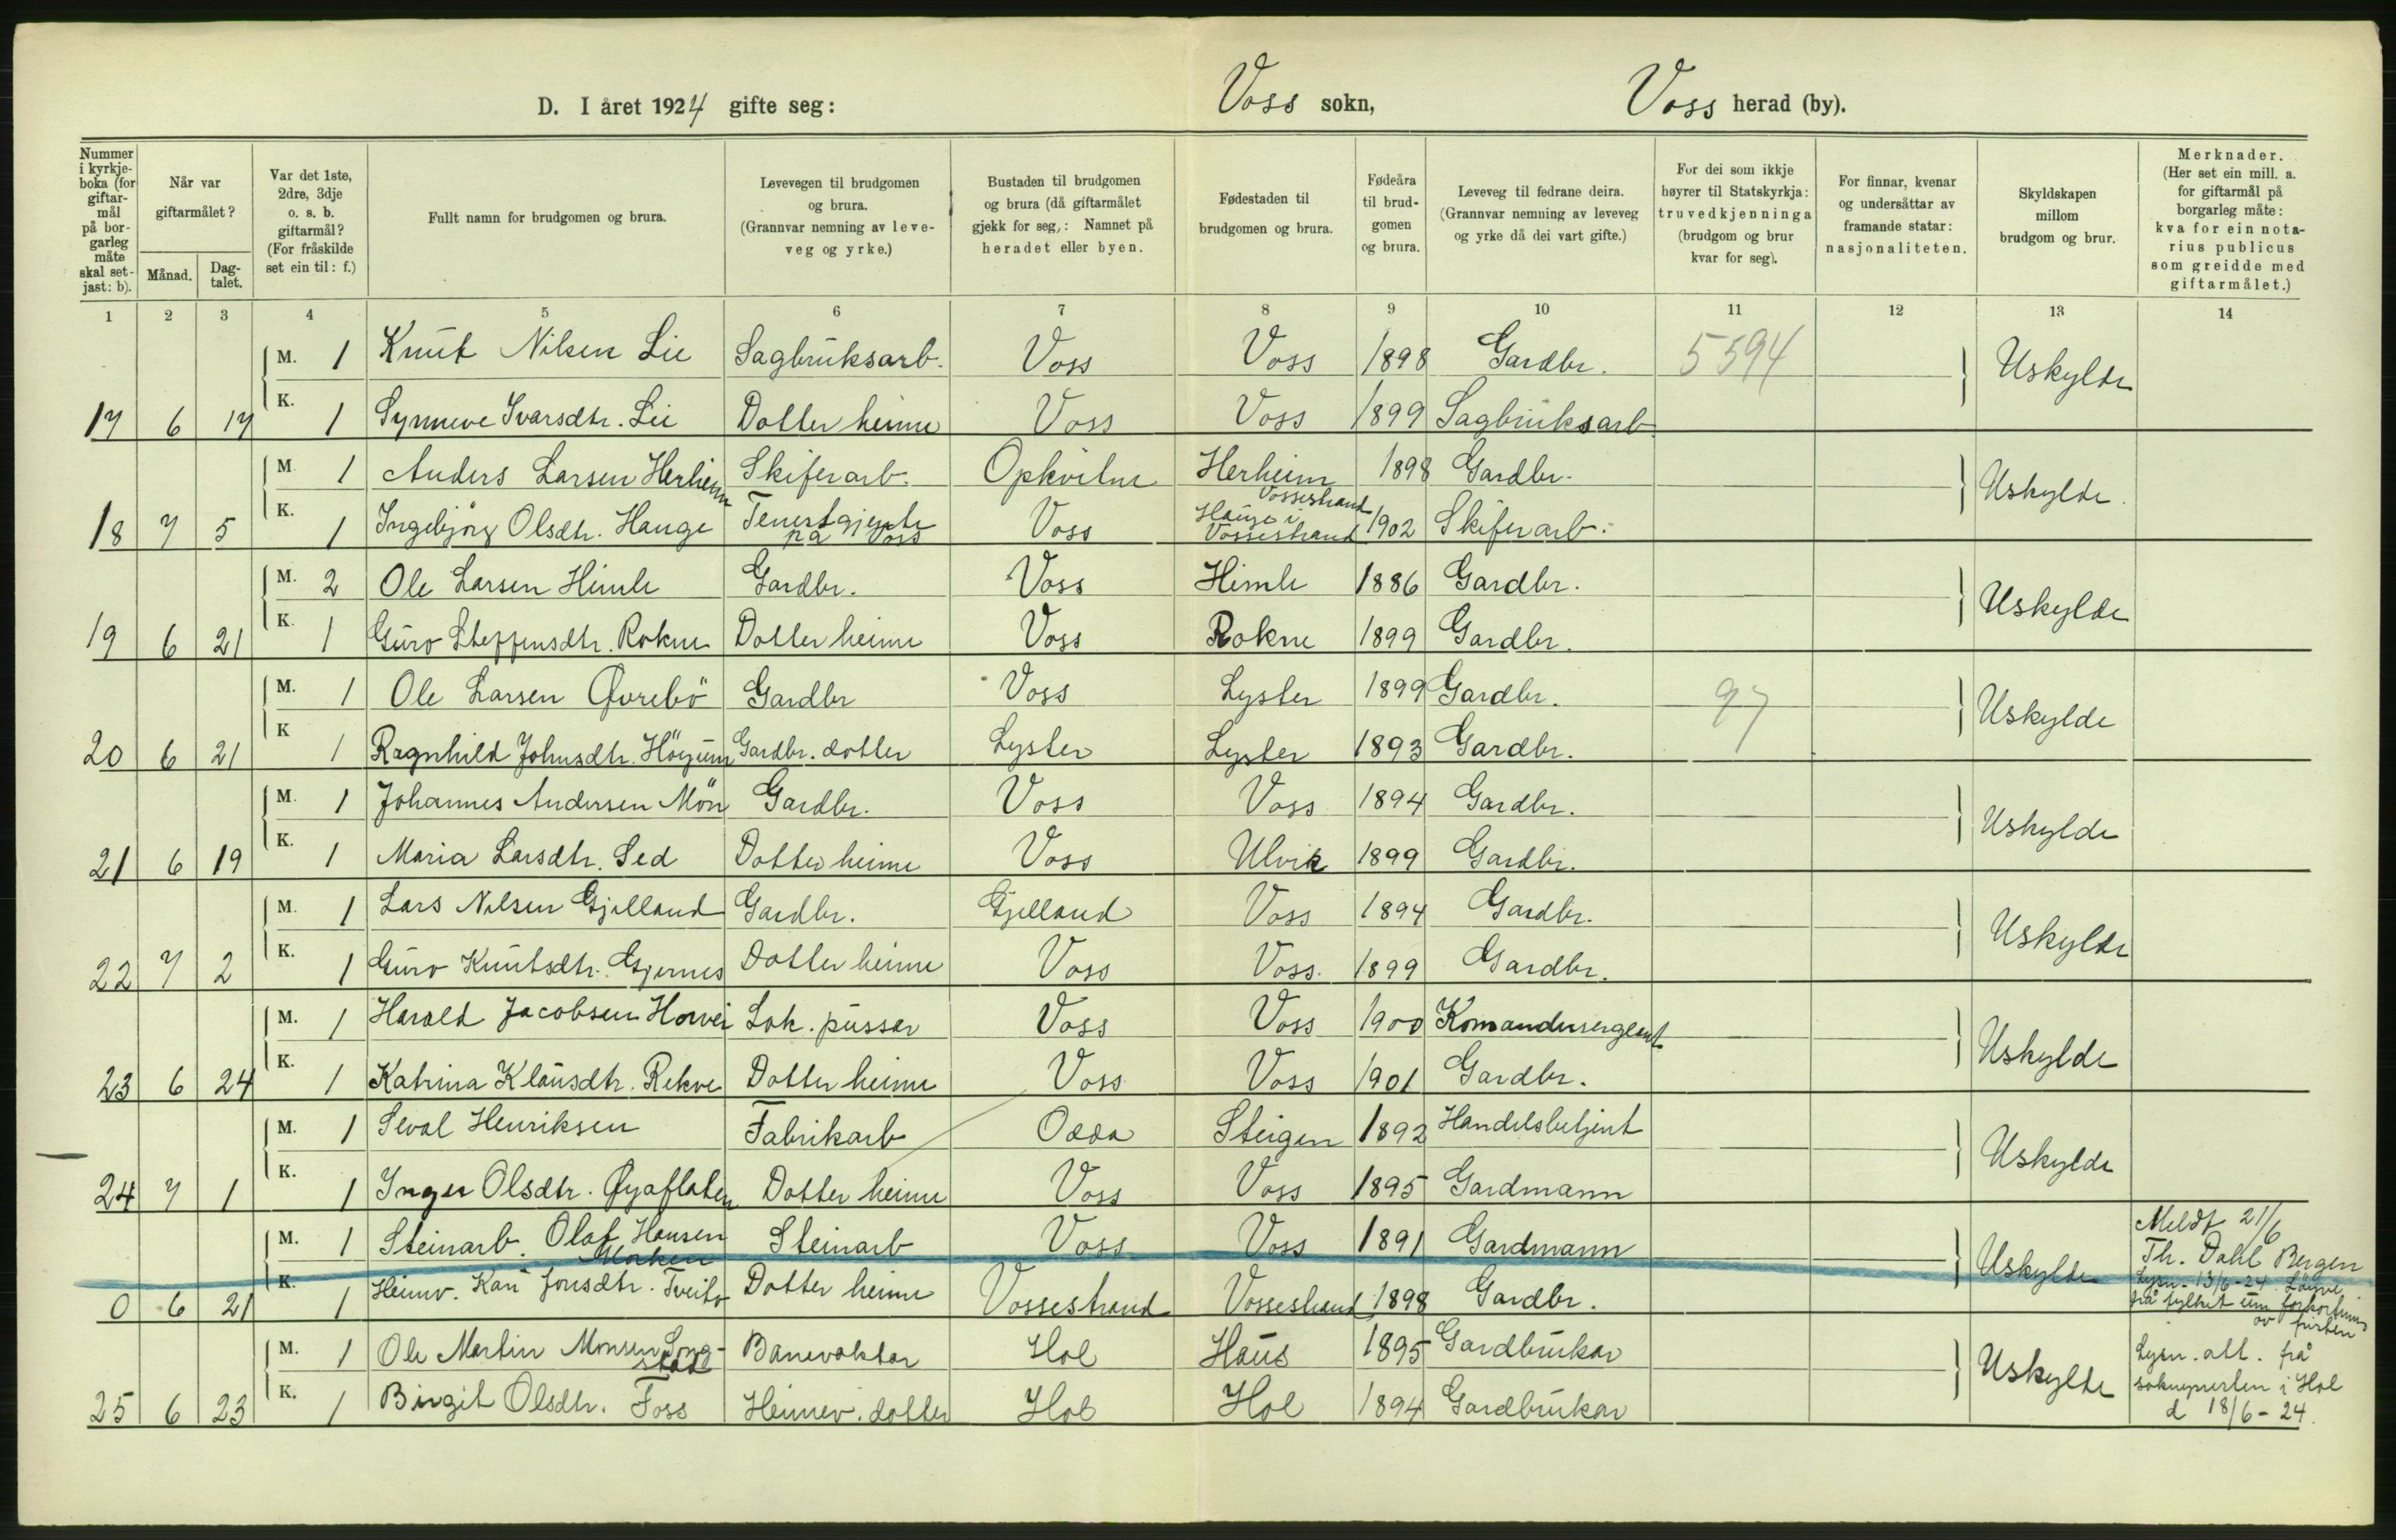 D. I året 1924 gifte seg: Voss sokn, Voss herad (by).
Nummer i kyrkje-boka (for giftar-mål på bor-garleg måte skal set-jast: b).
Når var giftarmålet?
Månad.
Dag-talet.
Var det 1ste, 2dre, 3dje o. s. b. giftarmål? (For fråskilde set ein til: f.)
Fullt namn for brudgomen og brura.
Levevegen til brudgomen og brura. (Grannvar nemning av leve-veg og yrke.)
Bustaden til brudgomen og brura (då giftarmålet gjekk for seg,: Namnet på heradet eller byen.
Fødestaden til brudgomen og brura.
Fødeåra til brud-gomen og brura.
Leveveg til fedrane deira. (Grannvar nemning av leveveg og yrke då dei vart gifte.)
For dei som ikkje høyrer til Statskyrkja: truvedkjenninga (brudgom og brur kvar for seg).
For finnar, kvenar og undersåttar av framande statar: nasjonaliteten.
Skyldskapen millom brudgom og brur.
Merknader. (Her set ein mill. a. for giftarmål på borgarleg måte: kva for ein nota-rius publicus som greidde med giftarmålet.)
1 2 3 4 5 6 7 8 9 10 11 12 13 14
M. 1 Knut Nilsen Lie Sagbruksarb. Voss Voss 1898 Gardbr. 5594 Uskylde
17 6 17 K. 1 Synneve Ivarsdtr. Lie Dotter heime Voss Voss 1899 Sagbruksarb
M. 1 Anders Larsen Herheim Skiferarb. Opkvitne Herheim Vossestrand 1898 Gardbr. Uskylde.
18 7 5 K. 1 Ingebjörg Olsdtr. Hauge Tenestgjente på Voss Voss Hauge i Vossestrand 1902 Skiferarb.
M. 2 Ole Larsen Himle Gardbr. Voss Himle 1886 Gardbr. Uskylde
19 6 21 K. 1 Guro Steffensdtr. Rokne Dotter heime Voss Rokne 1899 Gardbr.
M. 1 Ole Larsen Øvrebö Gardbr Voss Lyster 1899 Gardbr. 97 Uskylde
20 6 21 K 1 Ragnhild Johnsdtr. Höyum Gardbr. dotter Lyster Lyster 1893 Gardbr.
M. 1 Johannes Andersen Mön Gardbr. Voss Voss 1894 Gardbr. Uskylde
21 6 19 K. 1 Maria Larsdtr. Sed Dotter heime Voss Ulvik 1899 Gardbr.
M. 1 Lars Nilsen Gjelland Gardbr. Gjelland Voss 1894 Gardbr. Uskylde
22 7 2 K. 1 Guro Knutsdtr. Gjernes Dotter heime Voss Voss. 1899 Gardbr.
M. 1 Harald Jacobsen Horvei Lok. pussar Voss Voss 1900 Komandersergeant Uskylde
23 6 24 K. 1 Katrina Klausdtr. Rekve Dotter heime Voss Voss 1901 Gardbr.
M. 1 Seval Henriksen Fabrikarb Odda Steigen 1892 Handelsbetjent Uskylde
24 7 1 K. 1 Inger Olsdtr. Øyaflaten Dotter heime Voss Voss 1895 Gardmann
M. 1 Steinarb. Olaf Hansen Steinarb Voss Voss 1891 Gardmann Uskylde Meldt 21/6 Th. Dahl Bergen
0 6 21 K. 1 Heimv. Kari Jonsdtr. Tveito Dotter heime Vossestrand Vossestrand 1898 Gardbr. Lysn. 13/6-24. Löyve frå fylket um forkortning av fristen
M. 1 Ole Martin Monsen Songstad Banevaktar Hol Haus 1895 Gardbrukar Uskylde Lysn. att. frå
25 6 23 K. 1 Birgit Olsdtr. Foss Heimev. dotter Hol Hol 1894 Gardbrukar soknepresten i Hol d 18/6-24.